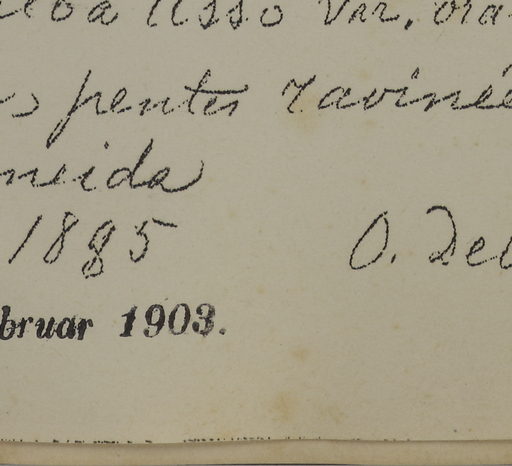 Asso var. ora
pentes ravinée
neida
1895 O. Deb
bruar 1903.